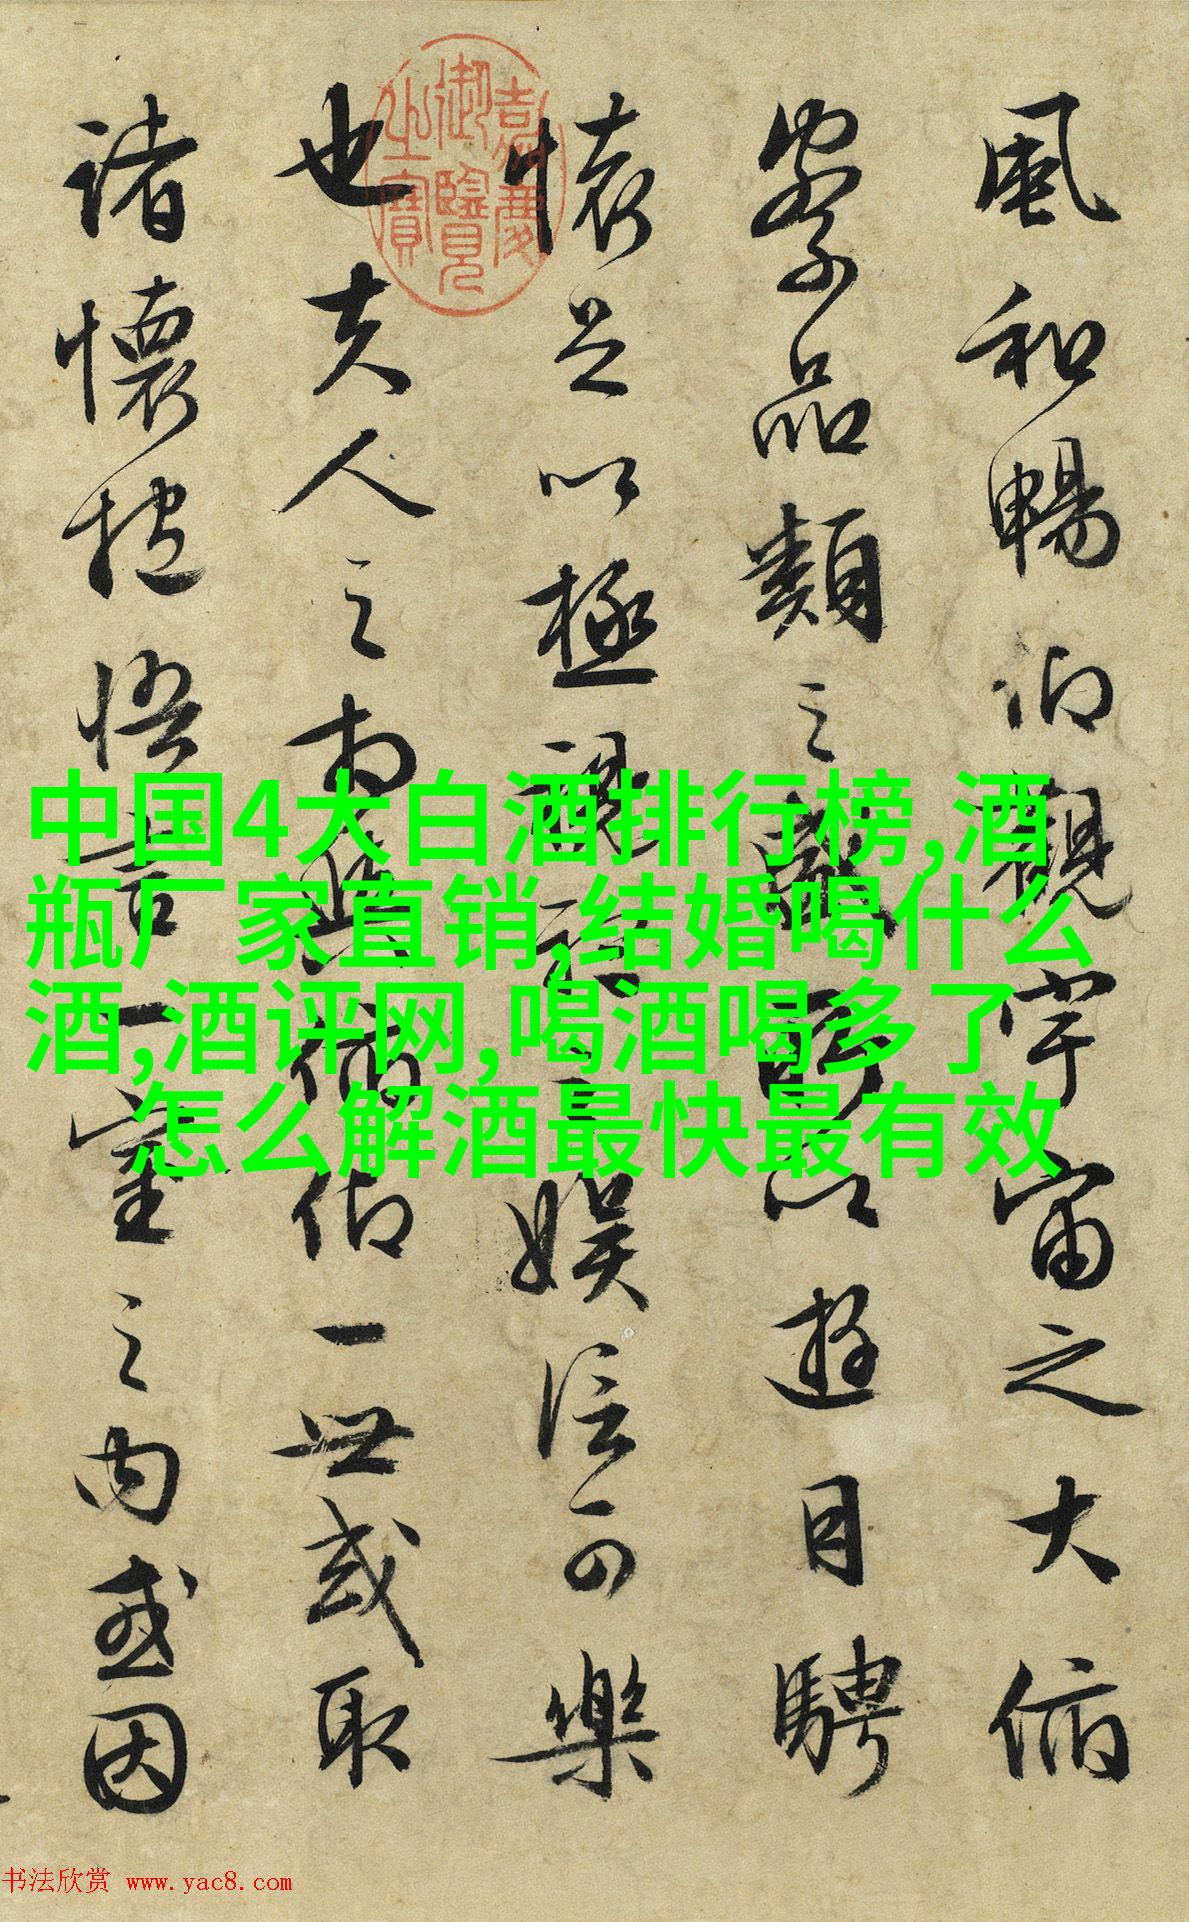 風和暢仰觀宇宙之大俯
察品類之盛所以遊目騁
懷足以極視聽之娛信可樂
也夫人之相與俯仰一世或取
諸懷抱悟言一室之內或因
嘉慶
御覽
之寶
中国4大白酒排行榜,酒
瓶厂家直销,结婚喝什么
酒,酒评网,喝酒喝多了
怎么解酒最快最有效
书法欣赏 www.yac8.com